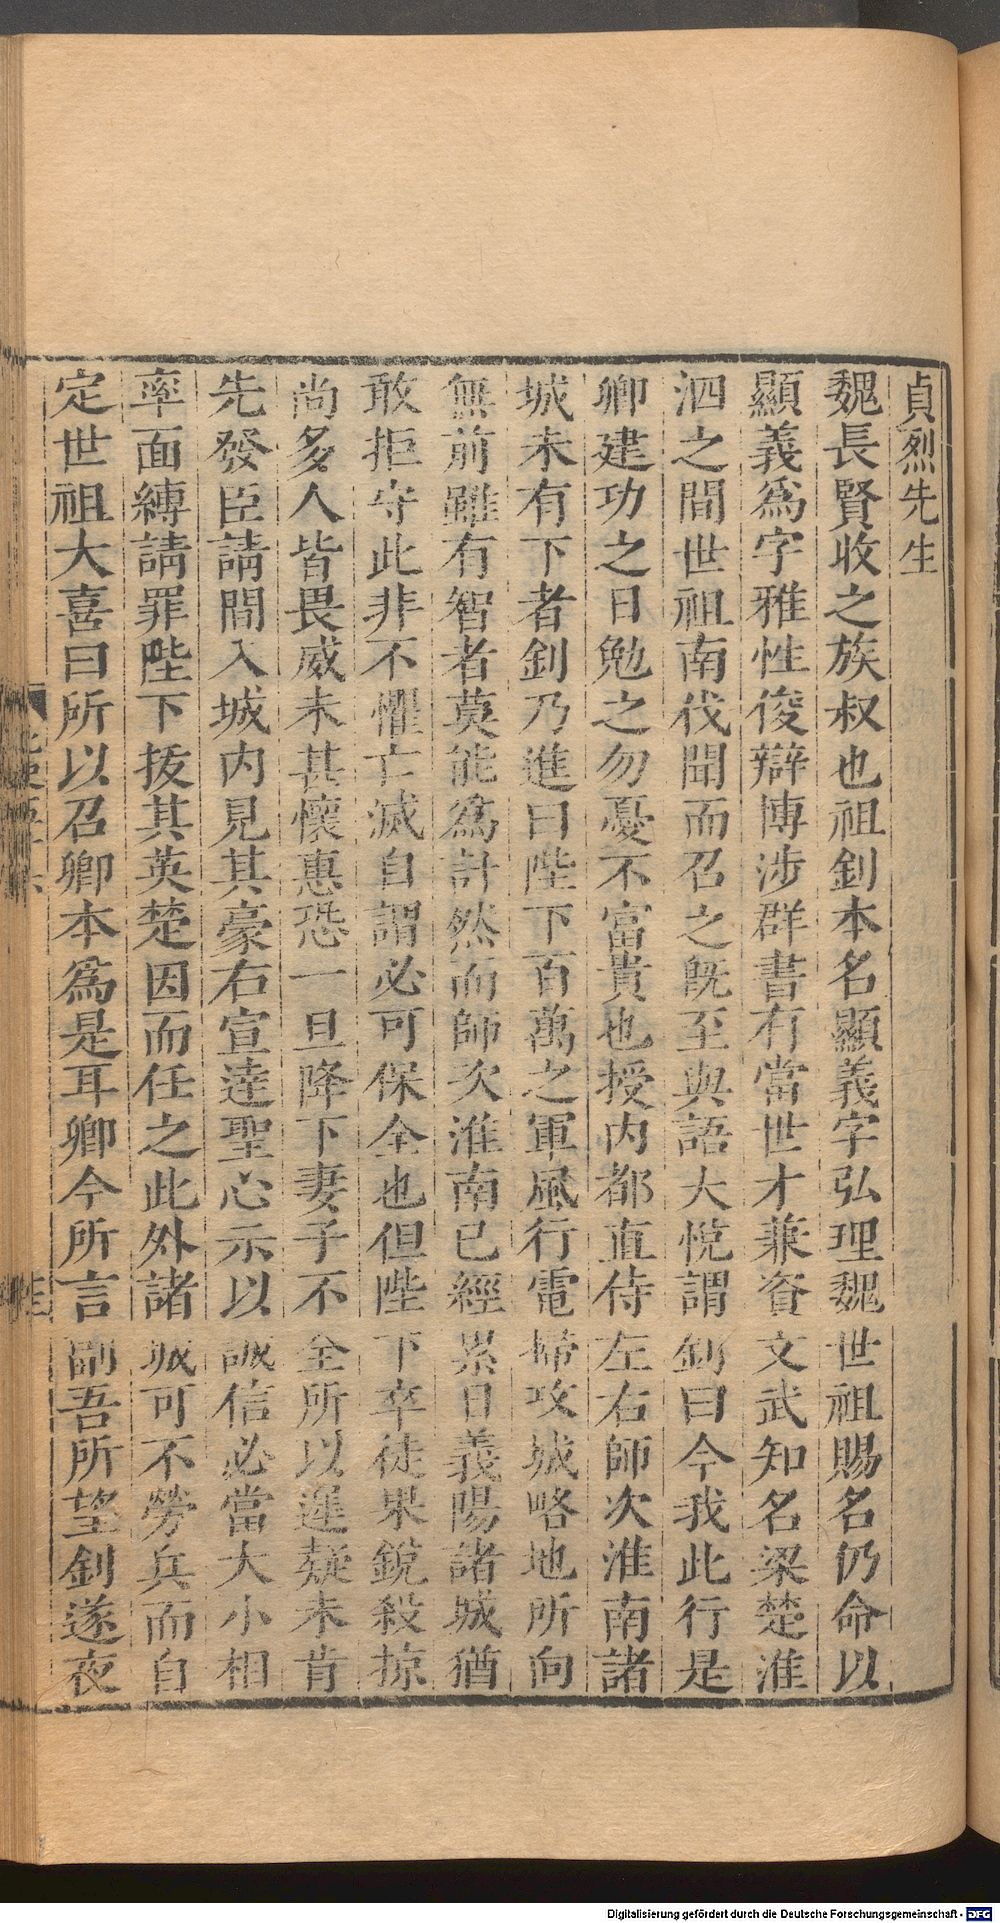 貞烈先生
魏長賢收之族叔也祖釗本名顯義字弘理魏世祖賜名仍命以
顯義爲字雅性俊辯博涉群書有當世才兼資文武知名梁楚淮
泗之間世祖南伐聞而召之旣至與語大悅謂釗曰今我此行是
卿建功之日勉之勿憂不富貴也授内都直侍左右師次淮南諸
城未有下者釗乃進曰陛下百萬之軍風行電掃攻城略地所向
無前雖有智者莫能爲計然而師次淮南已經累日義陽諸城猶
敢拒守此非不懼亡滅自謂必可保全也但陛下卒徒果銳殺掠
尚多人皆畏威未甚懷惠恐一旦降下妻子不全所以遲疑未肯
先發臣請間入城内見其豪右宣達聖心示以誠信必當大小相
率面縛請罪陛下拔其英楚因而任之此外諸城可不勞兵而自
定世祖大喜曰所以召卿本爲是耳卿今所言副吾所望釗遂夜
Digitalisierung gefördert durch die Deutsche Forschungsgemeinschaft - DFG